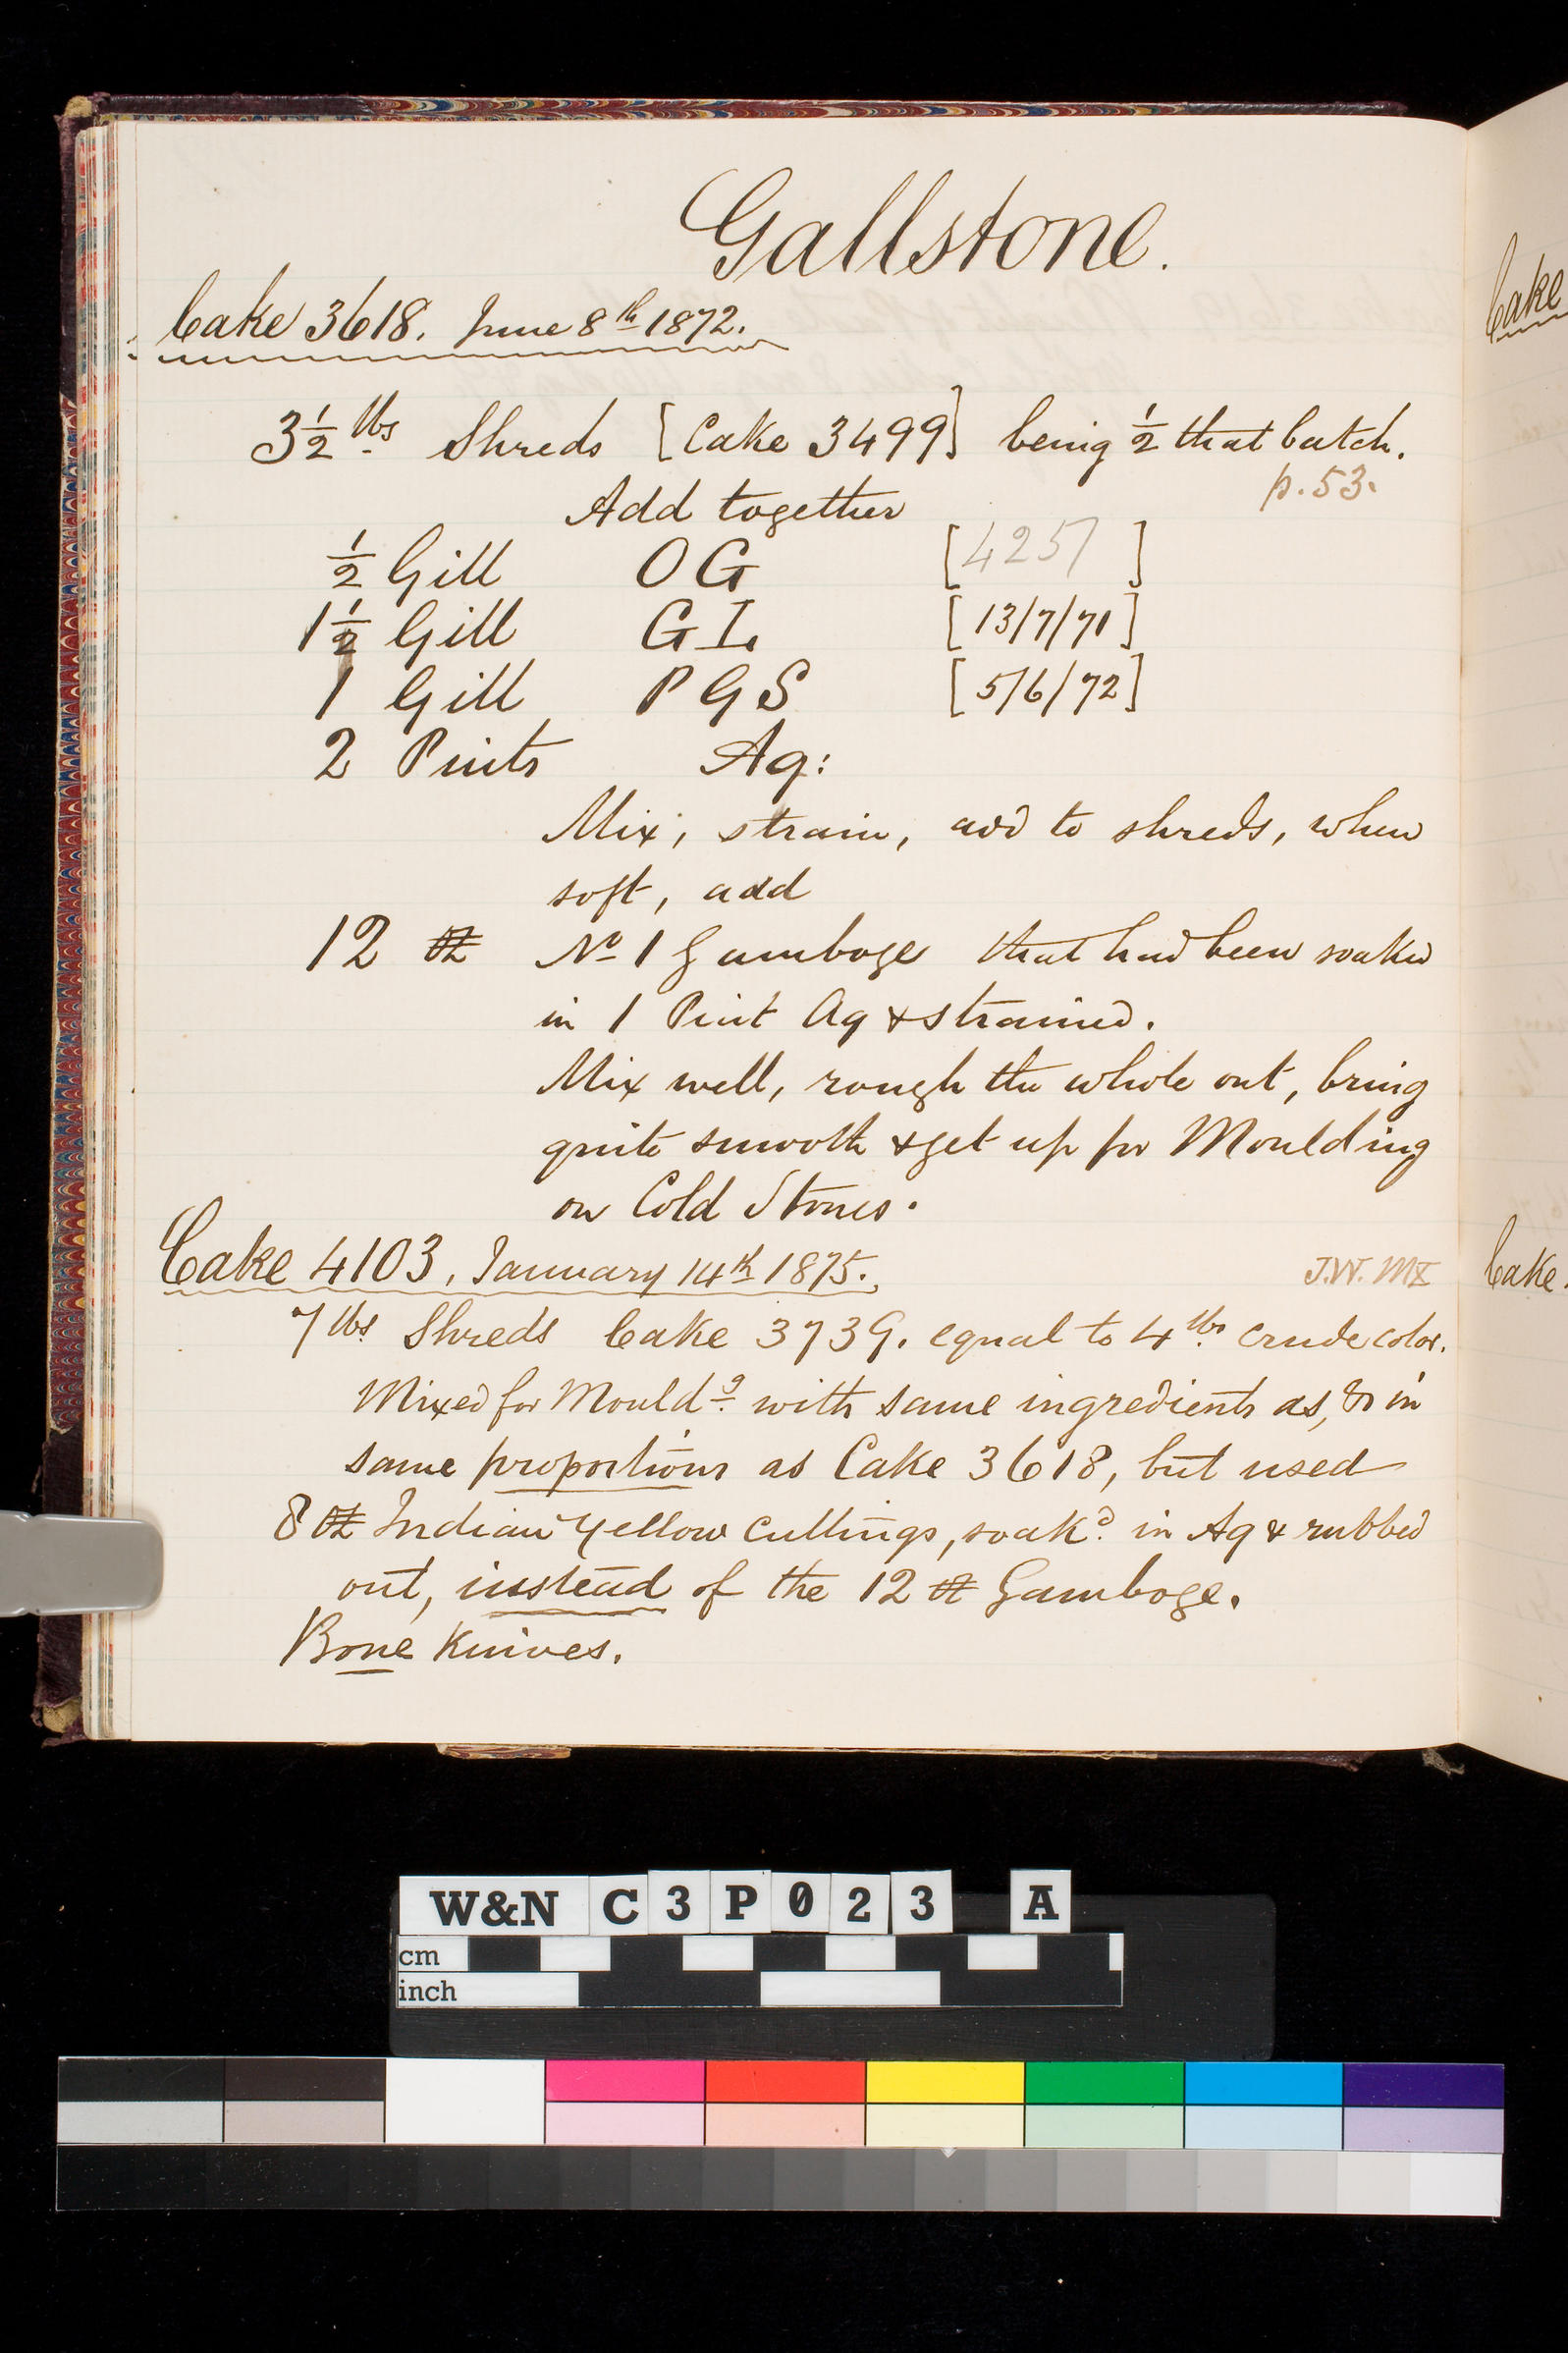 Gallstone.
Cake 3618. June 8th 1872.
3½ lbs Shreds [Cake 3499] being ½ that batch.
p. 53.
Add together
½ Gill OG [4257]
1½ Gill GI. [13/7/71]
1 Gill PGS [5/6/72]
2 Pints Aq:
Mix, strain, add to shreds, when
soft, add
12 oz No 1 Gamboge that had been soaked
in 1 Pint Aq & strained.
Mix well, rough the whole out, bring
quite smooth & get up for Moulding
on Cold Stones.
Cake 4103. January 14th 1875. J.W. MX
7 lbs Shreds Cake 3739. equal to 4 lbs crude color.
Mixed for Mouldg with same ingredients as, & in
same proportions as Cake 3618, but used
8 oz Indian Yellow Cuttings, soakd in Aq & rubbed
out, instead of the 12 oz Gamboge.
Bone Knives.
Cake
Cake
W&N C3P023 A
cm
inch